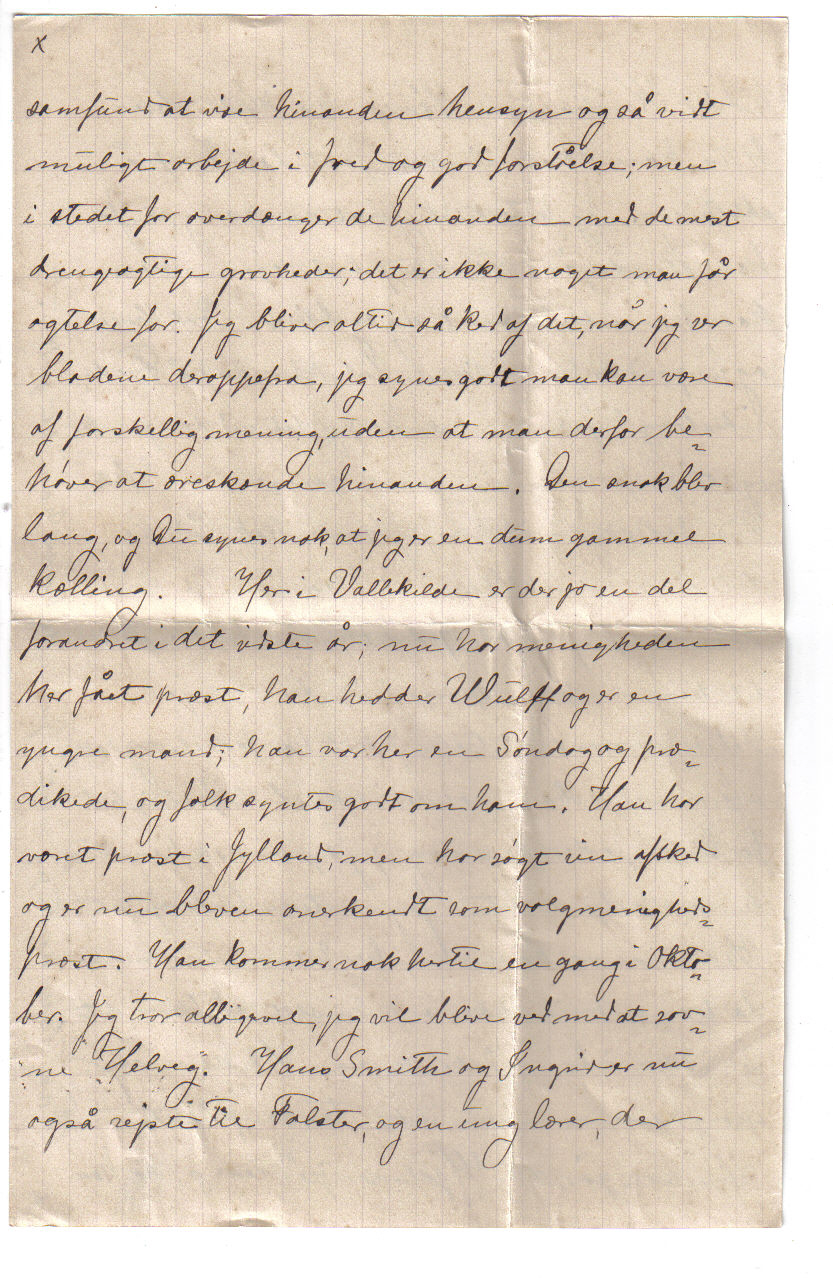 x
samfund at vise hinanden hensyn og så vidt
muligt arbejde i fred og god forståelse; men
i stedet for overdænger de hinanden med de mest
drengeagtige grovheder; det er ikke noget man får
agtelse for. Jeg bliver altid så ked af det, når jeg ser
bladene deroppefra, jeg synes godt man kan være
af forskellig mening, uden at man derfor be-
höver at æreskænde hinanden. Den snak blev
lang, og Du synes nok, at jeg er en dum gammel
kælling. Her i Vallekilde er der jo en del
forandret i det sidste år; nu har menigheden
her fået præst, han hedder Wulff og er en
yngre mand; han var her en Söndag og præ-
dikede, og folk syntes godt om ham. Han har
været præst i Jylland, men har søgt sin afsked
og er nu bleven anerkendt som valgmenigheds-
præst. Han kommer nok hertil en gang i Okto-
ber. Jeg tror alligevel, jeg vil blive ved med at sav-
ne Helveg. Hans Smith og Ingrid er nu
også rejste til Falster, og en ung lærer, der